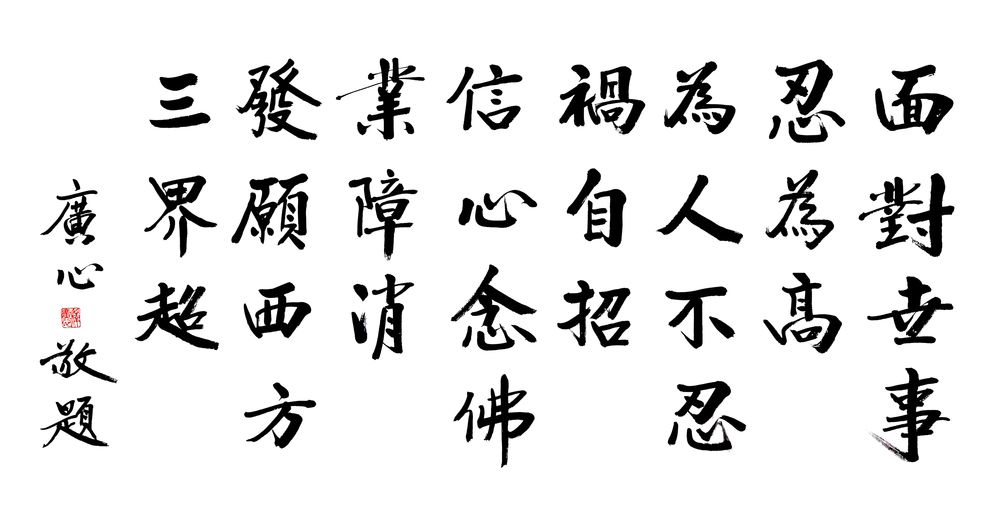 面對世事
忍為高
為人不忍
禍自招
信心念佛
業障消
發願西方
三界超
廣心
敬題